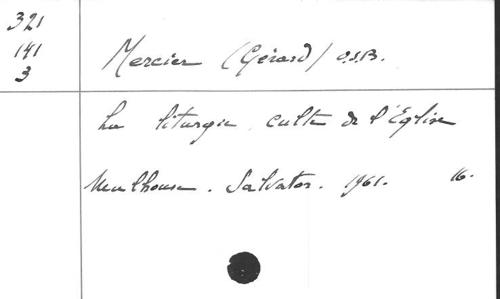 321
141
3
Mercier (Gérard) O.S.B.
La liturgie, culte de l'Eglise
Mulhouse. Salvator. 1961. 16.